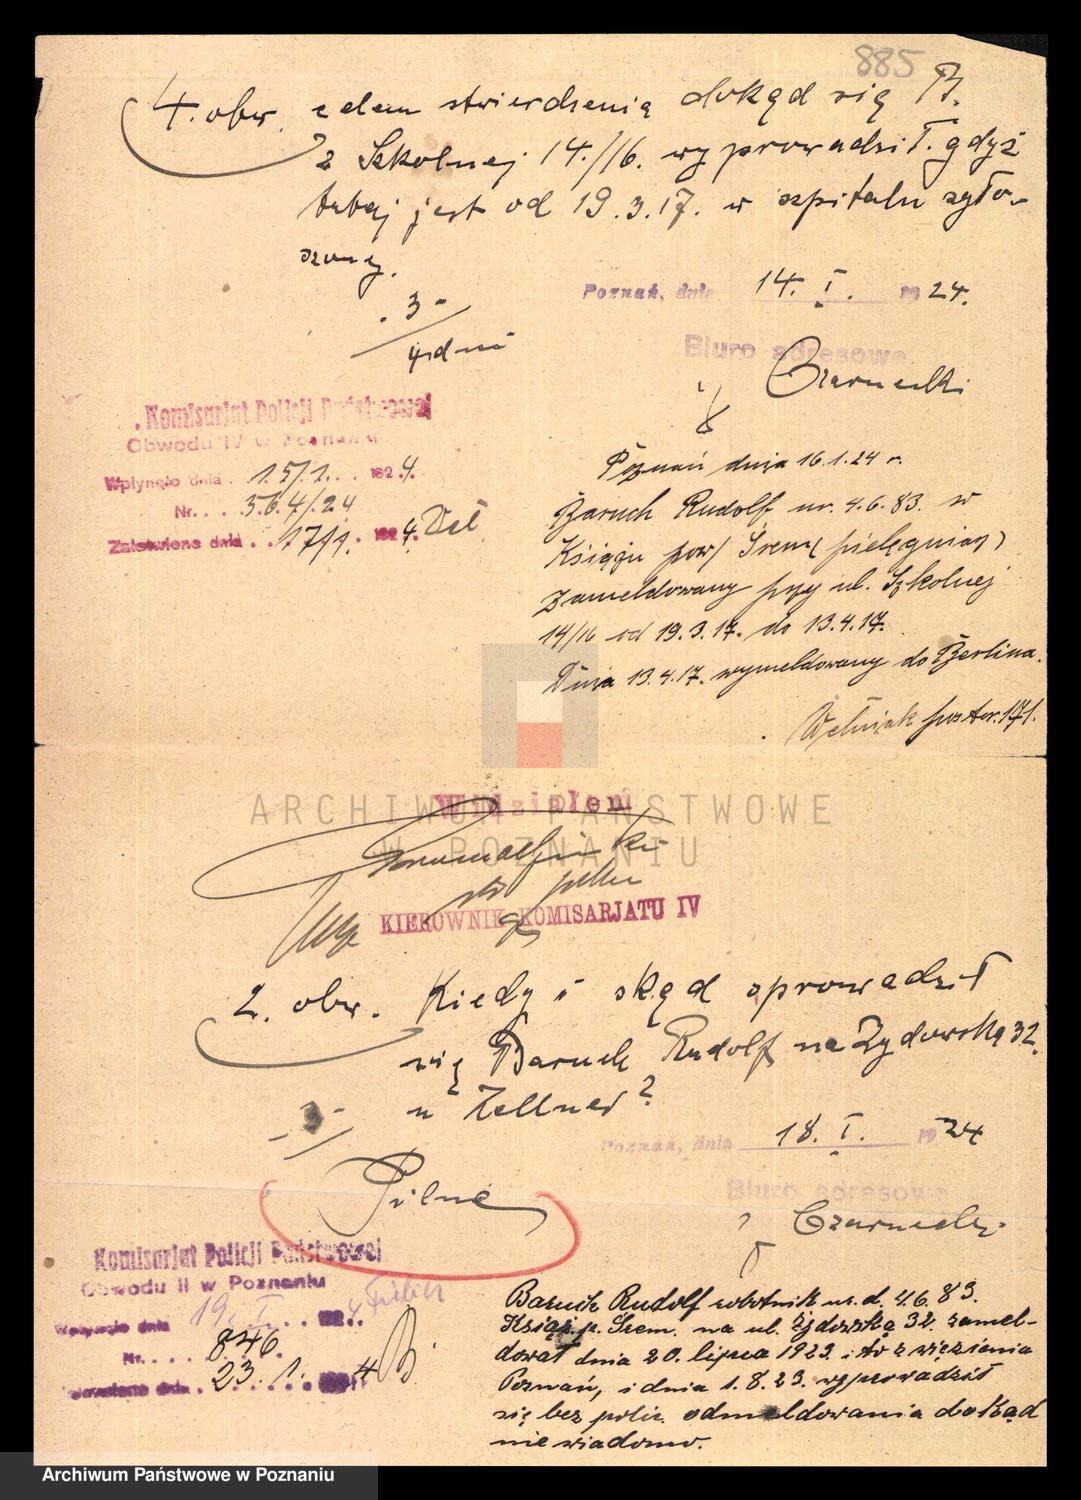 885
4. obw. celem stwierdzenią dokąd się B.
z Szkolnej 14./16. wyprowadził. gdyż
tutaj jest od 19.3.17. w szpitalu zgło-
szony.
3 -
4 dni
Poznań, dnia 14. I. 1924.
Biuro adresowe
Czarnecki
Komisarjat Policji Państwowej
Obwodu IV w Poznaniu
Wpłynęło dnia 15/1. 1924.
Nr. 364/24
Załatwiono dnia 17/1. 1924.
Poznań dnia 16.1.24 r.
Baruch Rudolf ur. 4.6.83. w
Książu pow/ Śrem (pielęgniarz)
zameldowany przy ul. Szkolnej
14/16 od 19.3.17. do 13.4.17.
Dnia 13.4.17. wymeldowany do Berlina.
Wełniak poster. 171.
Widziałem
KIEROWNIK KOMISARJATU IV
2. obw. Kiedy i skąd sprowadził
się Baruch Rudolf na Żydowską 32.
u Zellner?
3 -
Poznań, dnia 18. I. 1924
Pilne
Biuro adresowe
Czarnecki
Komisarjat Policji Państwowej
Obwodu II w Poznaniu
Wpłynęło dnia 19. I. 1924
Nr. 846.
Załatwiono dnia 23. 1. 1924
Baruch Rudolf robotnik ur. d. 4.6.83.
Książ p. Śrem. na ul. Żydowską 32. zamel-
dował dnia 20. lipca 1923. i to z więzienia
Poznań, i dnia 1.8.23. wyprowadził
się bez policz. odmeldowania dokąd
nie wiadomo.
ARCHIWUM PAŃSTWOWE
W POZNANIU
Archiwum Państwowe w Poznaniu